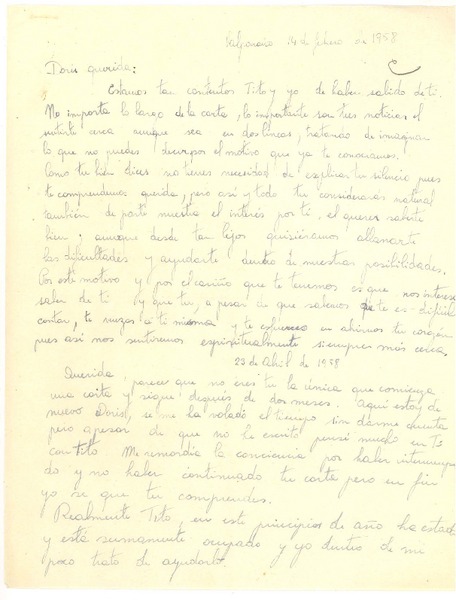 Valparaíso 14 de febrero de 1958
Doris querida:
Estamos tan contentos Tito y yo de haber sabido de ti.
No importa lo largo de la carta, lo importante son tus noticias, el
sentirte cerca aunque sea en dos líneas, tratando de imaginar
lo que no puedes decirnos el motivo que ya te conocíamos.
Como tu bien dices no tienes necesidad de explicar tu silencio pues
te comprendemos querida, pero así y todo tu consideraras natural
también de parte nuestra el interés por ti, el querer saberte
bien; aunque desde tan lejos quisiéramos allanarte
las dificultades y ayudarte dentro de nuestras posibilidades.
Por este motivo y por el cariño que te tenemos es que nos interesa
saber de ti y que tu, a pesar de que sabemos que te es difícil
contar, te venzas a ti misma y te esfuerces en abrirnos tu corazón
pues así nos sentiremos espiritualmente siempre más cerca.
23 de Abril de 1958
Querida, parece que no eres tu la única que comienza
una carta y sigue después de dos meses. Aquí estoy de
nuevo Doris, se me ha volado el tiempo sin darme cuenta
pero apesar de que no he escrito pensé mucho en Ti
con Tito. Me remordía la conciencia por haber interrumpi
do y no haber continuado tu carta pero en fin
yo se que tu comprendes.
Realmente Tito, en este principios de año ha estado
y está sumamente ocupado y yo dentro de mi
poco trato de ayudarlo.